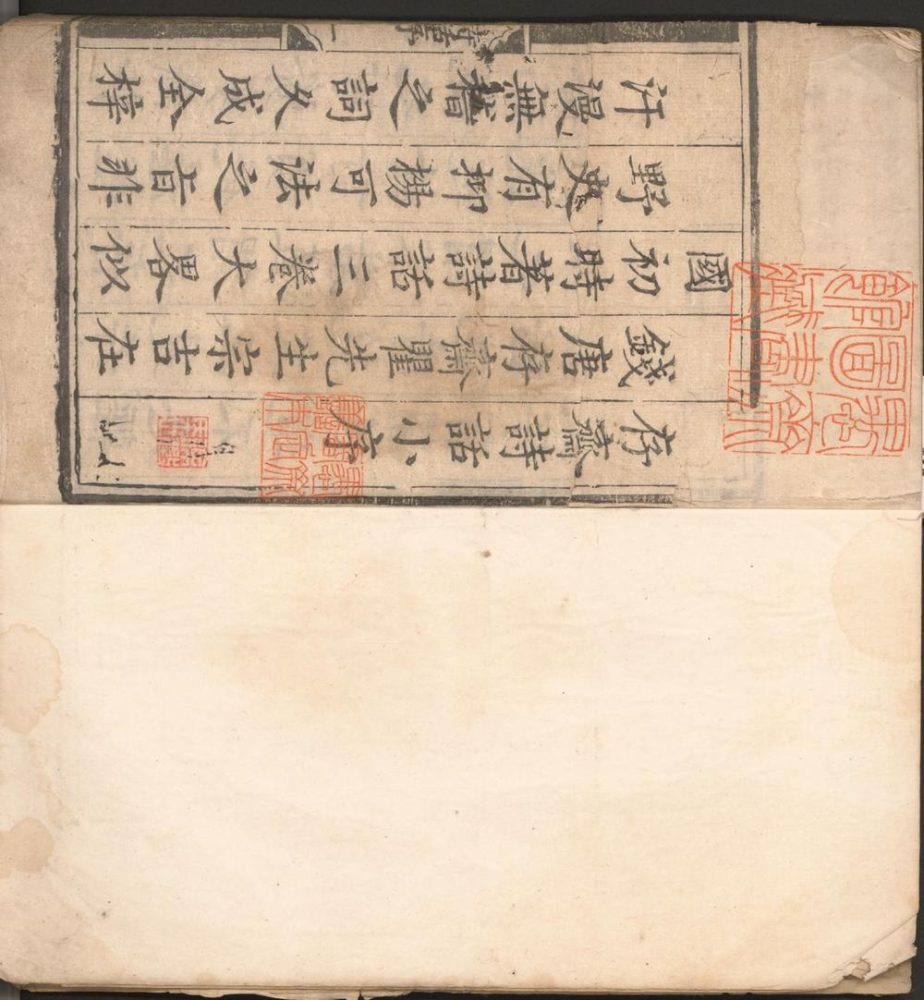 存齋詩話小序
錢唐存齋瞿先生宗吉在
國初時著詩話三卷大畧似
野史有抑揚可法之旨非
汗漫無稽之詞久成全梓